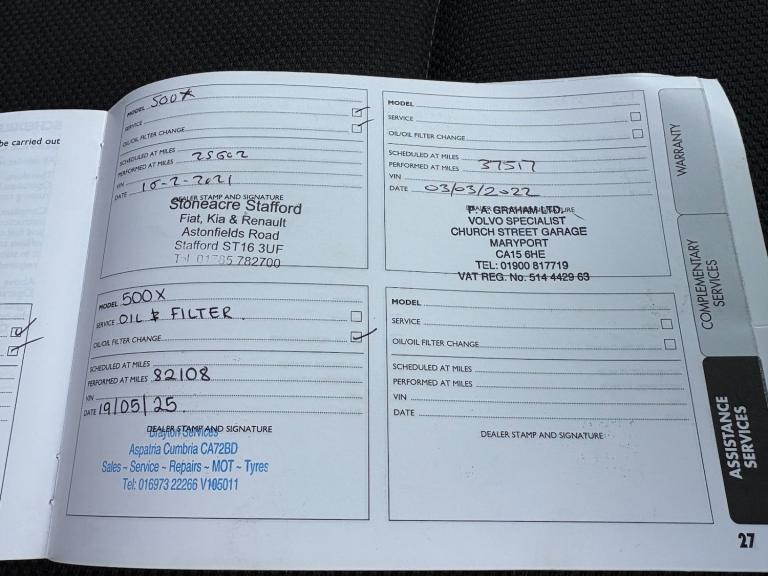 be carried out
MODEL 500X
SERVICE
OIL/OIL FILTER CHANGE
SCHEDULED AT MILES
PERFORMED AT MILES 25602
VIN
DATE 16-2-2021
DEALER STAMP AND SIGNATURE
Stoneacre Stafford
Fiat, Kia & Renault
Astonfields Road
Stafford ST16 3UF
Tel 01785 782700
MODEL
SERVICE
OIL/OIL FILTER CHANGE
SCHEDULED AT MILES
PERFORMED AT MILES 37517
VIN
DATE 03/03/2022
P. A. GRAHAM LTD.
VOLVO SPECIALIST
CHURCH STREET GARAGE
MARYPORT
CA15 6HE
TEL: 01900 817719
VAT REG. No. 514 4429 63
MODEL 500X
SERVICE OIL & FILTER.
OIL/OIL FILTER CHANGE
SCHEDULED AT MILES
PERFORMED AT MILES 82108
VIN
DATE 19/05/25.
DEALER STAMP AND SIGNATURE
Brayton Services
Aspatria Cumbria CA72BD
Sales ~ Service ~ Repairs ~ MOT ~ Tyres
Tel: 016973 22266 V105011
MODEL
SERVICE
OIL/OIL FILTER CHANGE
SCHEDULED AT MILES
PERFORMED AT MILES
VIN
DATE
DEALER STAMP AND SIGNATURE
WARRANTY
COMPLEMENTARY
SERVICES
ASSISTANCE
SERVICES
27